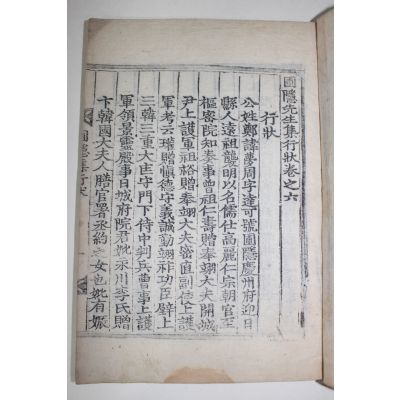 圃隱先生集行狀卷之六
行狀
公姓鄭諱夢周字達可號圃隱慶州府迎日
縣人遠祖襲明以名儒仕高麗仁宗朝官至
樞密院知奏事曾祖仁壽贈奉翊大夫開城
尹上護軍祖裕贈奉翊大夫密直副使上護
軍考云瓘贈愼德守義誠勤翊祚功臣壁上
三韓三重大匡守門下侍中判兵曹事上護
軍領景靈殿事日城府院君妣永川李氏贈
卞韓國大夫人膳官署丞約之女也妣有娠
圃隱集行狀